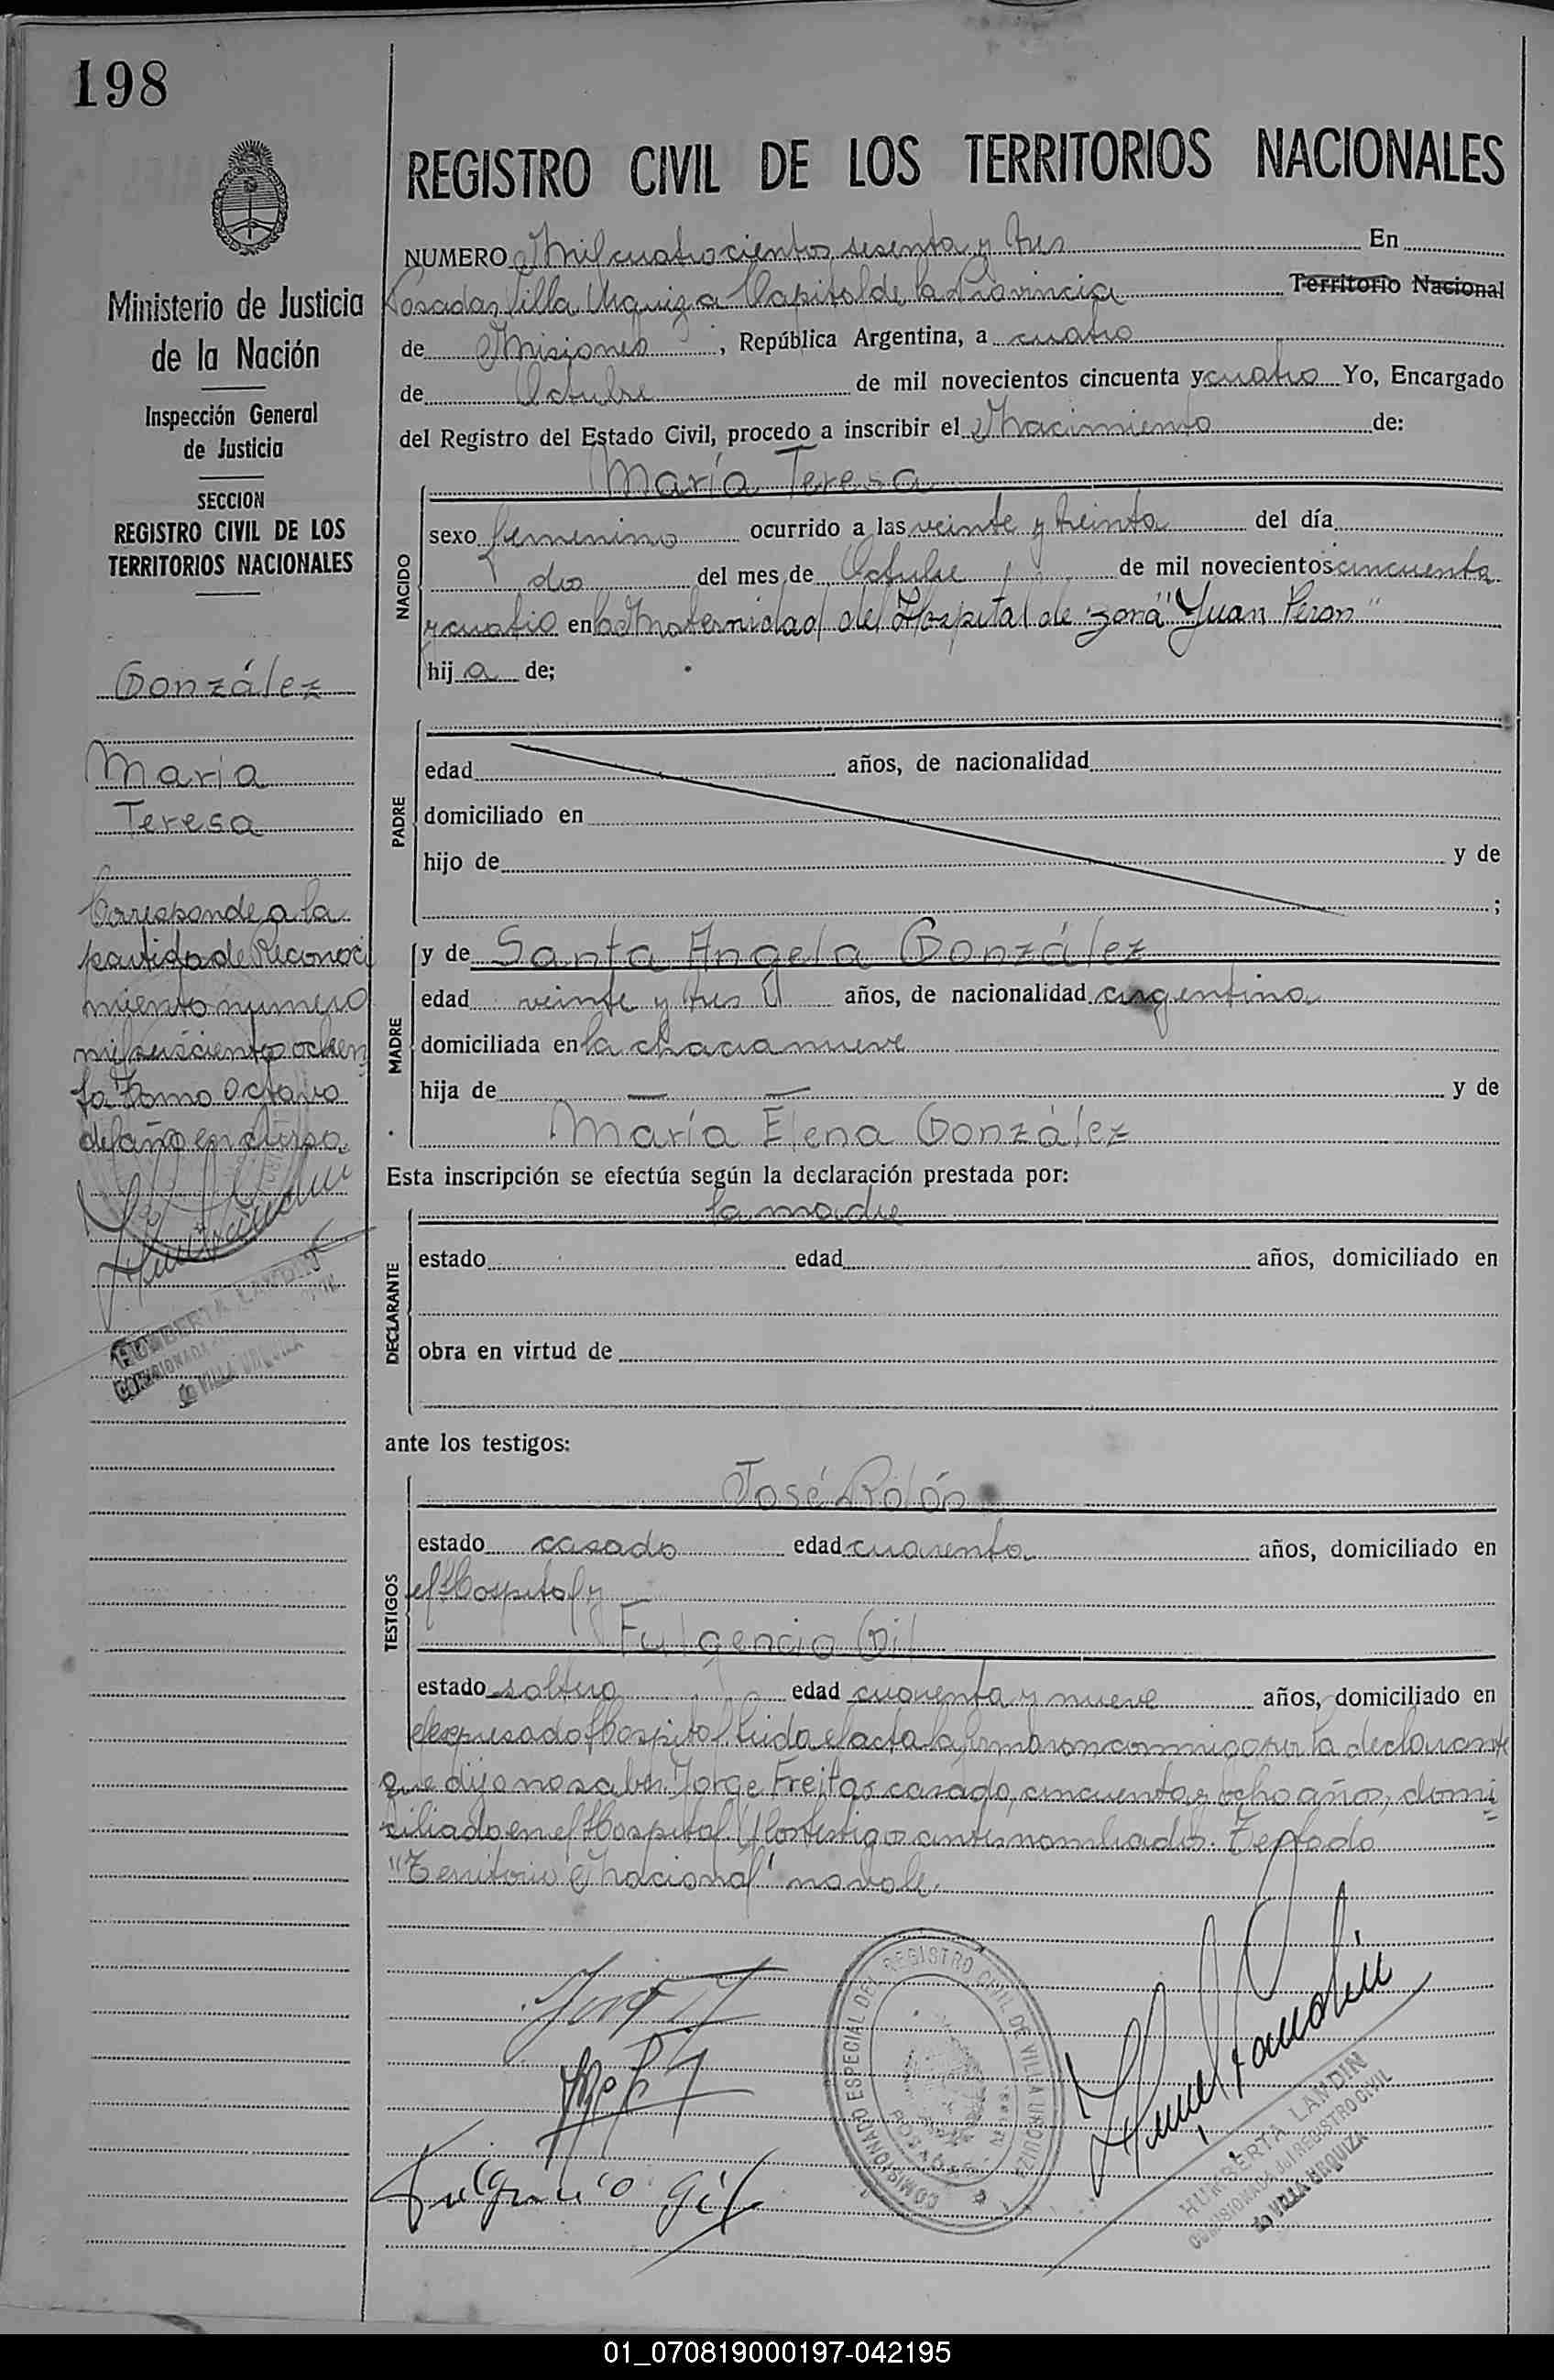 198
REGISTRO CIVIL DE LOS TERRITORIOS NACIONALES
Ministerio de Justicia
de la Nación
Inspección General
de Justicia
SECCION
REGISTRO CIVIL DE LOS
TERRITORIOS NACIONALES
González
María
Teresa
Corresponde a la
partida de Reconoci
miento número
mil seiscientos ochen
ta Tomo Octavo
del año en curso.
HUMBERTA LANDIN
COMISIONADA
de VILLA URQUIZA
NUMERO Mil cuatrocientos sesenta y tres En
Posadas, Villa Urquiza Capital de la Provincia Territorio Nacional
de Misiones, República Argentina, a cuatro
de Octubre de mil novecientos cincuenta y cuatro Yo, Encargado
del Registro del Estado Civil, procedo a inscribir el Nacimiento de:
María Teresa
NACIDO
sexo femenino ocurrido a las veinte y treinta del día
dos del mes de Octubre de mil novecientos cincuenta
y cuatro en la Maternidad del Hospital de zona "Juan Peron"
hij a de;
PADRE
edad años, de nacionalidad
domiciliado en
hijo de y de
;
MADRE
y de Santa Angela González
edad veinte y tres años, de nacionalidad argentina
domiciliada en la chacra nueve
hija de — — y de
María Elena González
Esta inscripción se efectúa según la declaración prestada por:
DECLARANTE
la madre
estado edad años, domiciliado en
obra en virtud de
ante los testigos:
TESTIGOS
José Rolón
estado casado edad cuarenta años, domiciliado en
el Hospital y
Fulgencio Gil
estado soltero edad cuarenta y nueve años, domiciliado en
el expresado Hospital. Leida el acta la firmaron conmigo por la declarante
que dijo no saber Jorge Freitas casado, cincuenta y ocho años, domi
ciliado en el Hospital. Y los testigos antes nombrados. Testado
"Territorio Nacional" no vale.
Fulgencio Gil
COMISIONADO ESPECIAL DEL REGISTRO CIVIL DE VILLA URQUIZA
POSADAS
HUMBERTA LANDIN
COMISIONADA del REGISTRO CIVIL
de VILLA URQUIZA
01_070819000197-042195